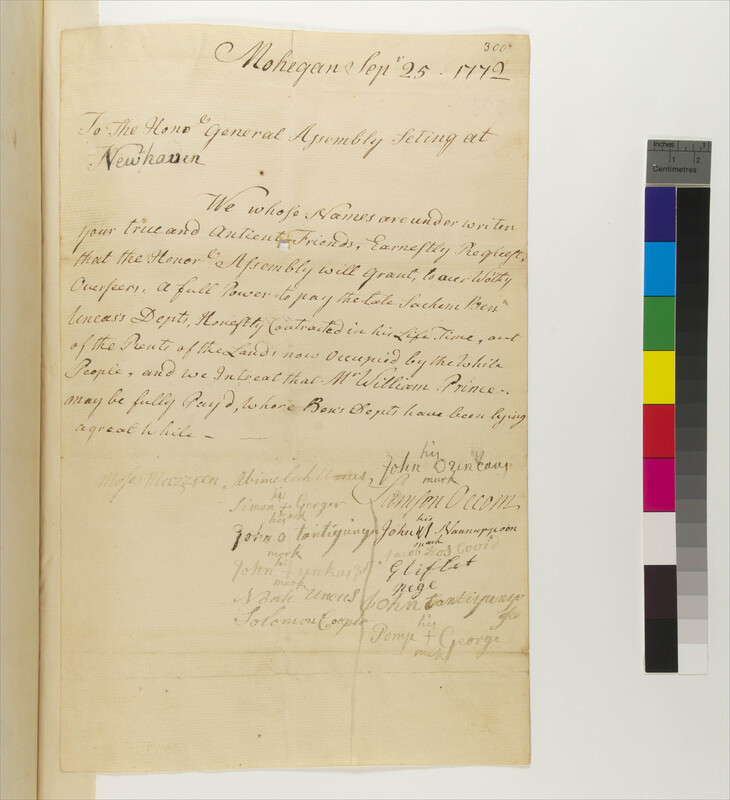 300
Mohegan Sepr 25 - 1772
To the Honole General Assembly Seting at
Newhaven
We whose Names are under writen
your true and Antient Friends, Earnestly Request,
that the Honorle Assembly will Grant, to our Wothy
Overseers, a full Power to pay the late Sachem Ben
Uncas's Depts, Honestly Contracted in his Life Time, out
of the Rents of the Lands now Occupied by the White
People, and we Intreat that Mr William Prince -
may be fully Pay'd, where Ben's Depts have been lying
a great While -
his
John O Uncaus
mark
Moses Mazzeen Abimeleck Uncus
Samson Occom
his
Simon + Gorger
mark
his
John O Tantiqungn
mark
his
John Nannuppoon
mark
Jacob Hos Covie
his
John +
mark
Gliflet
nege
Noah Uncus
John tantiqungn
Solomon Cooper
his
Pomp + George
mark
Inches 1
1 2
Centimetres